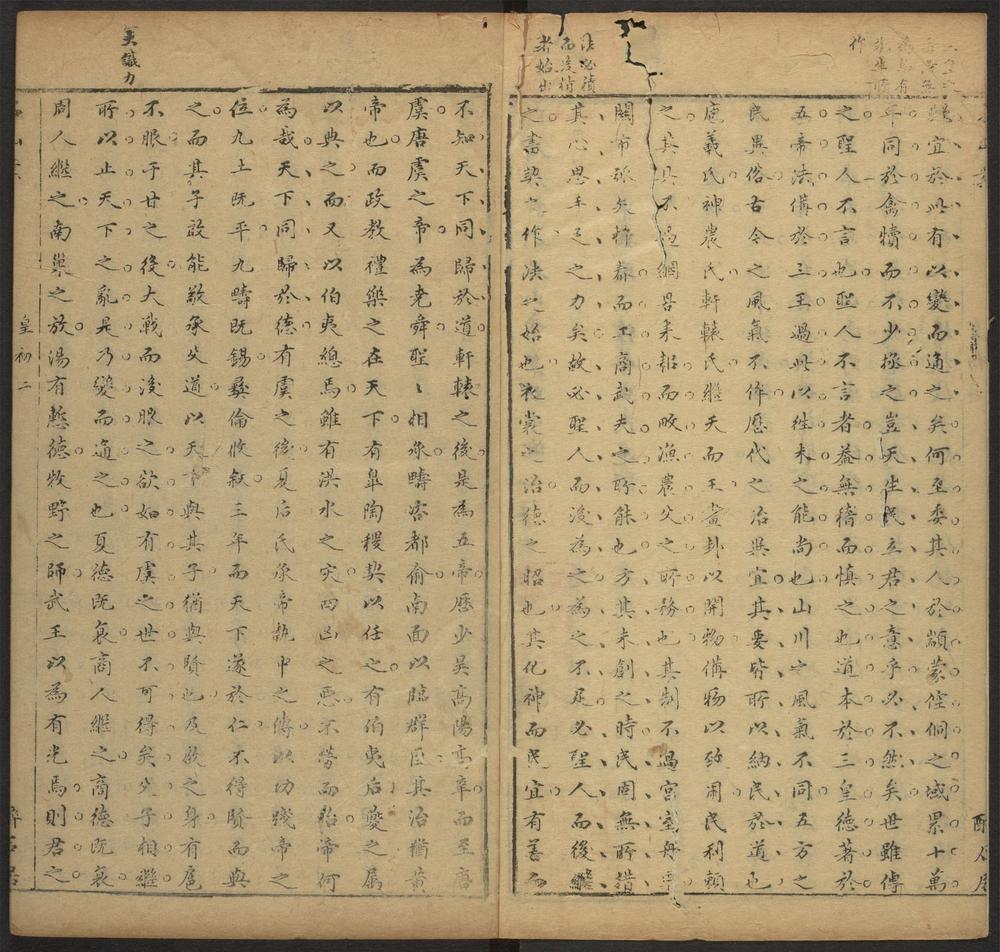 法必積
而後精
者始出
宜於此有以變而通之矣何至委其人於顓蒙侄侗之域累十萬
年同於禽犢而不少拯之豈天生民立君之意乎必不然矣世雖傳
之聖人不言也聖人不言者蓋無稽而慎之也道本於三皇德著於
五帝法備於三王過此以徃未之能尚也山川之風氣不同五方之
民異俗古今之風氣不侔歷代之治異宜其要皆所以納民於道也
庖羲氏神農氏軒轅氏繼天而王畫卦以開物備物以致用民利賴
之其具不過網罟耒耜而畋漁農父之所務也其制不過宮室舟
關市弧矢杵臼而工商武夫之所能也方其未創之時民固無所措
其心思手足之力矣故必聖人而後為之為之不足必聖人而後繼
之書契之作决之始也衣裳之治德之昭也其化神而民宜有善而
不知天下同歸於道軒轅之後是為五帝歷少昊高陽高辛而至唐
虞唐虞之帝為堯舜聖〻相承疇咨都俞南面以臨群臣其治猶黄
帝也而政教禮樂之在天下有臯陶稷契以任之有伯夷后夔之屬
以典之而又以伯夷總焉雖有洪水之灾四凶之惡不勞而治帝何
為哉天下同歸於德有虞之後夏后氏承帝執中之傳以功踐帝之
位九土既平九疇既錫彝倫攸敘三年而天下遂於仁不得賢而與
之而其子啟能敬承父道以天下與其子猶與賢也及啟之身有扈
不服于甘之後大戰而後服之欲如有虞之世不可得矣父子相繼
所以止天下之亂是乃變而通之也夏德既衰商人繼之商德既衰
周人繼之南巢之放湯有慙德牧野之師武王以為有光焉則君之
大識力
皇初 二